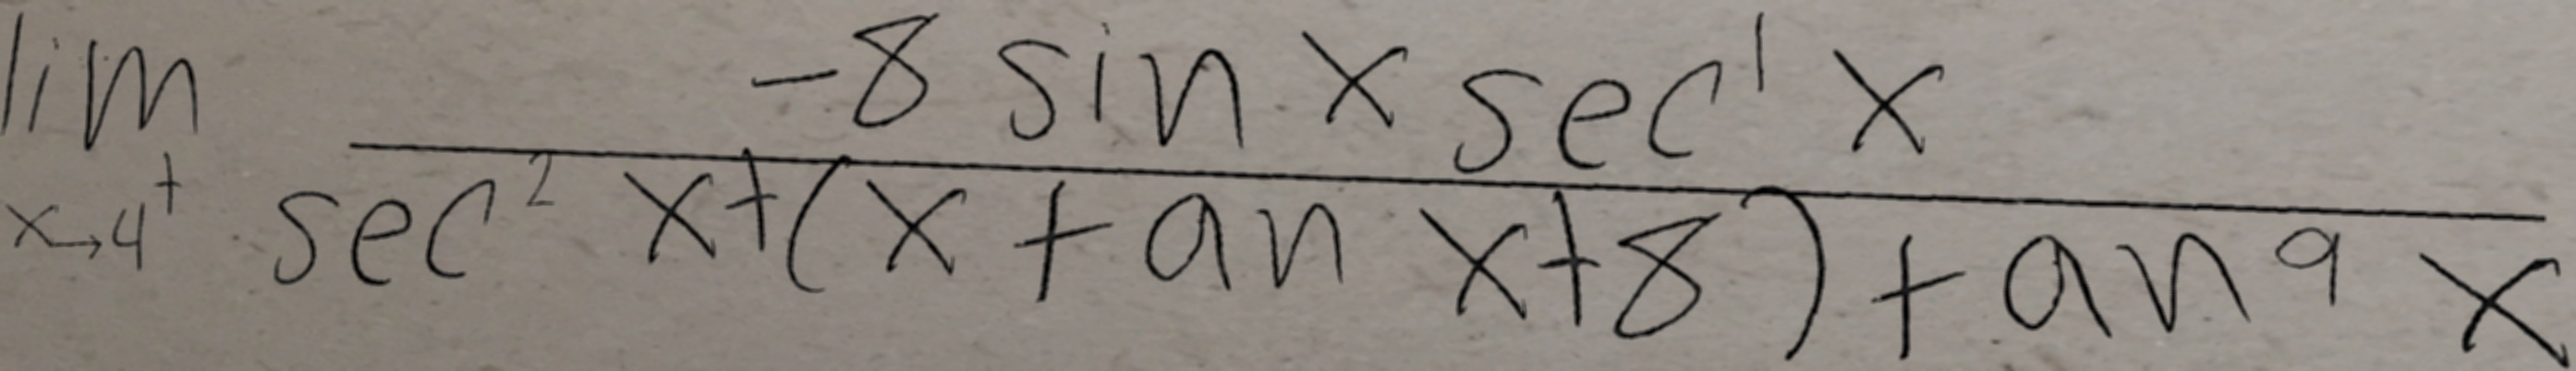 \lim_{x \to 4^+} \frac{-8 \sin x \sec^1 x}{\sec^2 x + (x \tan x + 8) \tan^9 x}